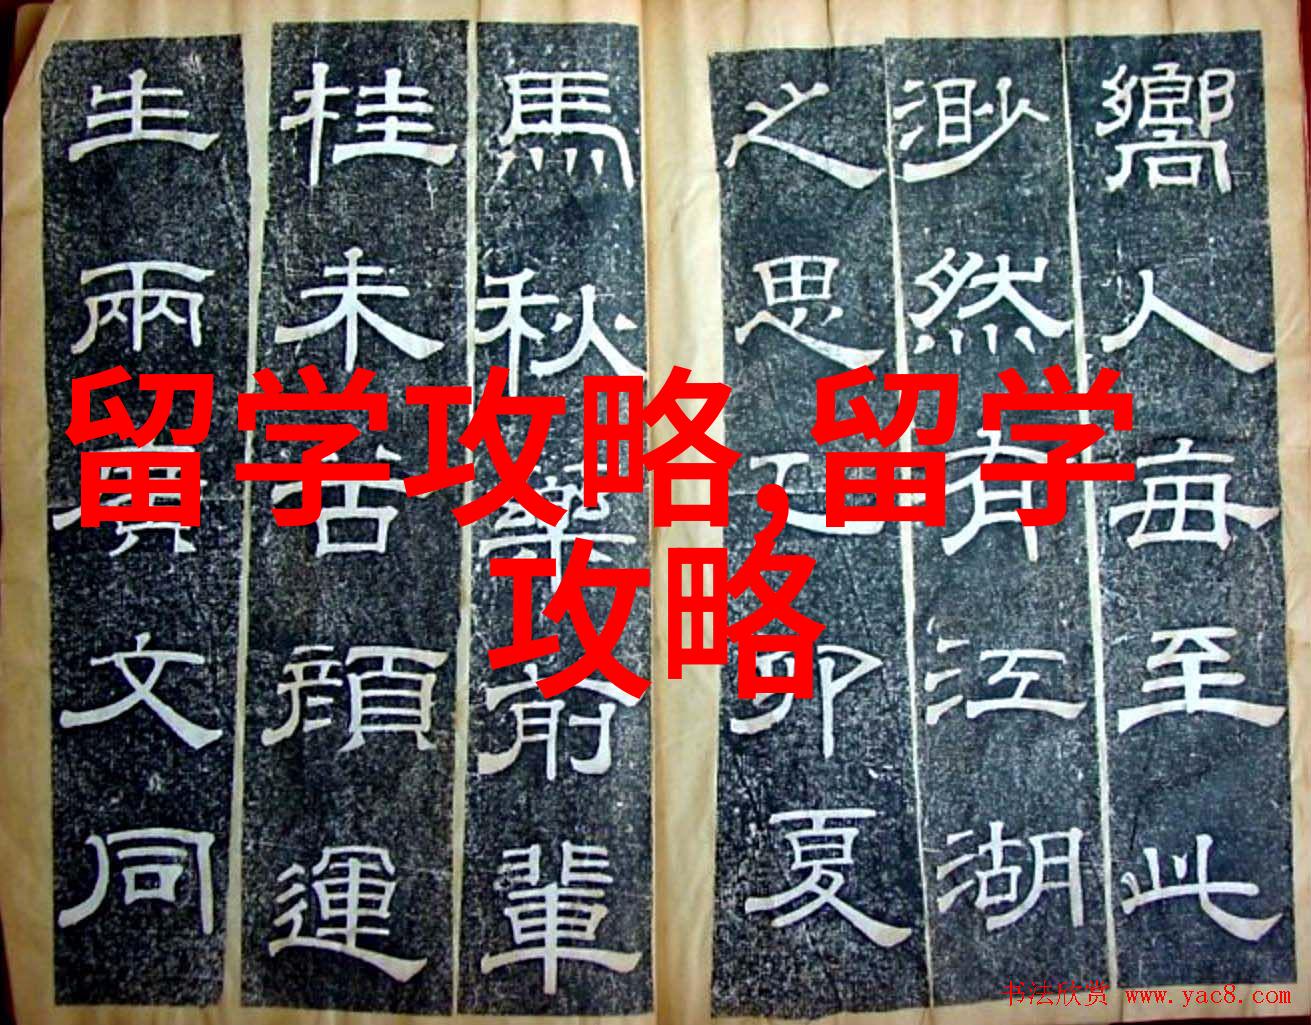 嚮人每至此
渺然有江湖
之思乙卯夏
馬秋藥前輩
桂未谷顏運
生兩文同
留学攻略,留学
攻略
书法欣赏 www.yac8.com